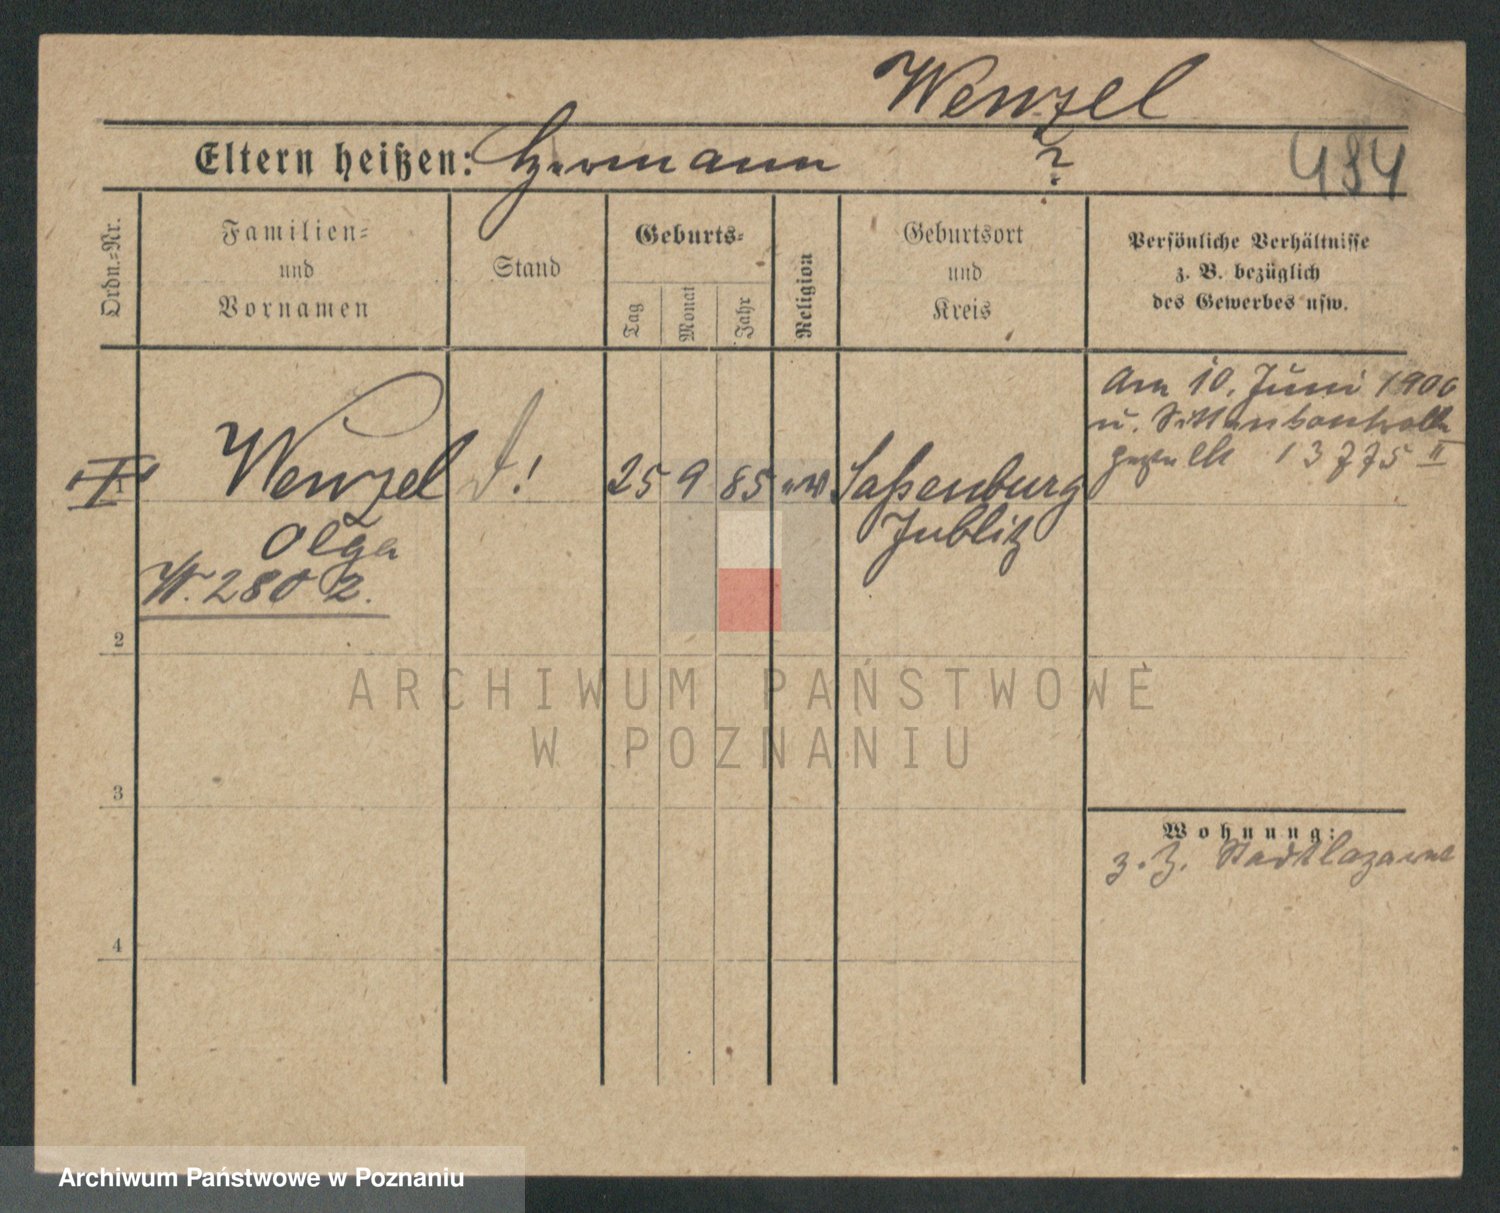 Wenzel
Eltern heißen: Hermann ?
484
Ordn.=Nr.
Familien=
und
Vornamen
Stand
Geburts=
Tag
Monat
Jahr
Religion
Geburtsort
und
Kreis
Persönliche Verhältnisse
z. B. bezüglich
des Gewerbes usw.
1 Wenzel
Olga
W. 2802.
! 25 9 85 ev Saßenburg
Bublitz
Am 10. Juni 1906
u. Sittenkontrolle
gestellt 13775 II
2
3
4
Wohnung:
z. Z. Stadtlazarett
ARCHIWUM PAŃSTWOWE
W POZNANIU
Archiwum Państwowe w Poznaniu